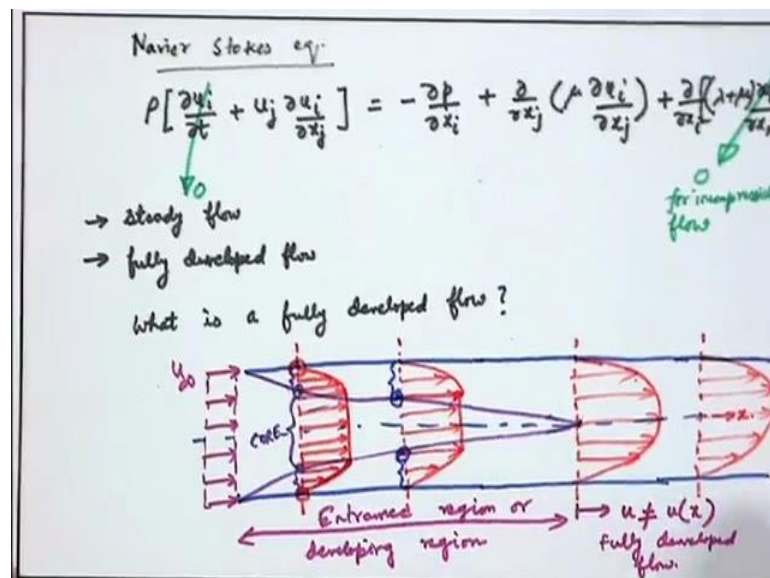 Navier Stokes eq.
ρ[∂uᵢ/∂t + uⱼ ∂uᵢ/∂xⱼ] = -∂p/∂xᵢ + ∂/∂xⱼ(μ ∂uᵢ/∂xⱼ) + ∂/∂xᵢ[(λ+μ)
0
0
for incompressib
flow
→ steady flow
→ fully developed flow
What is a fully developed flow?
u∞
CORE
x
Entrance region or
developing region
→ u ≠ u(x)
Fully developed
flow.